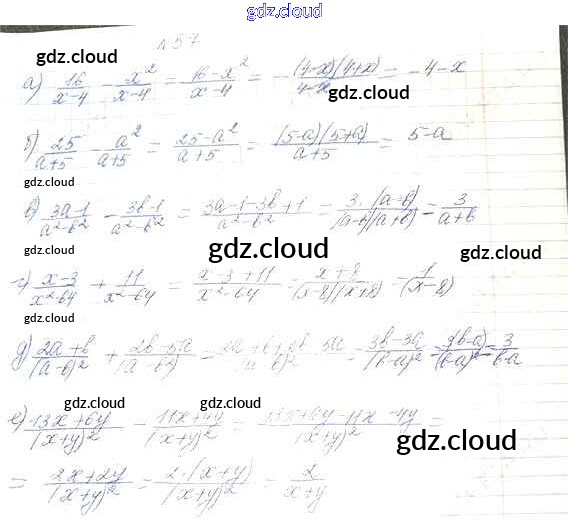 gdz.cloud
N 57
gdz.cloud gdz.cloud
а) 16/(x-4) - x²/(x-4) = (16-x²)/(x-4) = -(4-x)(4+x)/(4-x) = -4-x
gdz.cloud
б) 25/(a+5) - a²/(a+5) = (25-a²)/(a+5) = (5-a)(5+a)/(a+5) = 5-a
gdz.cloud gdz.cloud
в) (3a-1)/(a²-b²) - (3b-1)/(a²-b²) = (3a-1-3b+1)/(a²-b²) = 3·(a-b)/((a-b)(a+b)) = 3/(a+b)
gdz.cloud gdz.cloud gdz.cloud
г) (x-3)/(x²-64) + 11/(x²-64) = (x-3+11)/(x²-64) = (x+8)/((x-8)(x+8)) = 1/(x-8)
gdz.cloud
д) (2a+b)/(a-b)² + (2b-5a)/(a-b)² = = (3b-3a)/(b-a)² = 3(b-a)/(b-a)² = 3/(b-a)
gdz.cloud gdz.cloud
е) (13x+6y)/(x+y)² - (11x+4y)/(x+y)² = (13x+6y-11x-4y)/(x+y)² =
gdz.cloud
= (2x+2y)/(x+y)² = 2·(x+y)/(x+y)² = 2/(x+y)
gdz.cloud